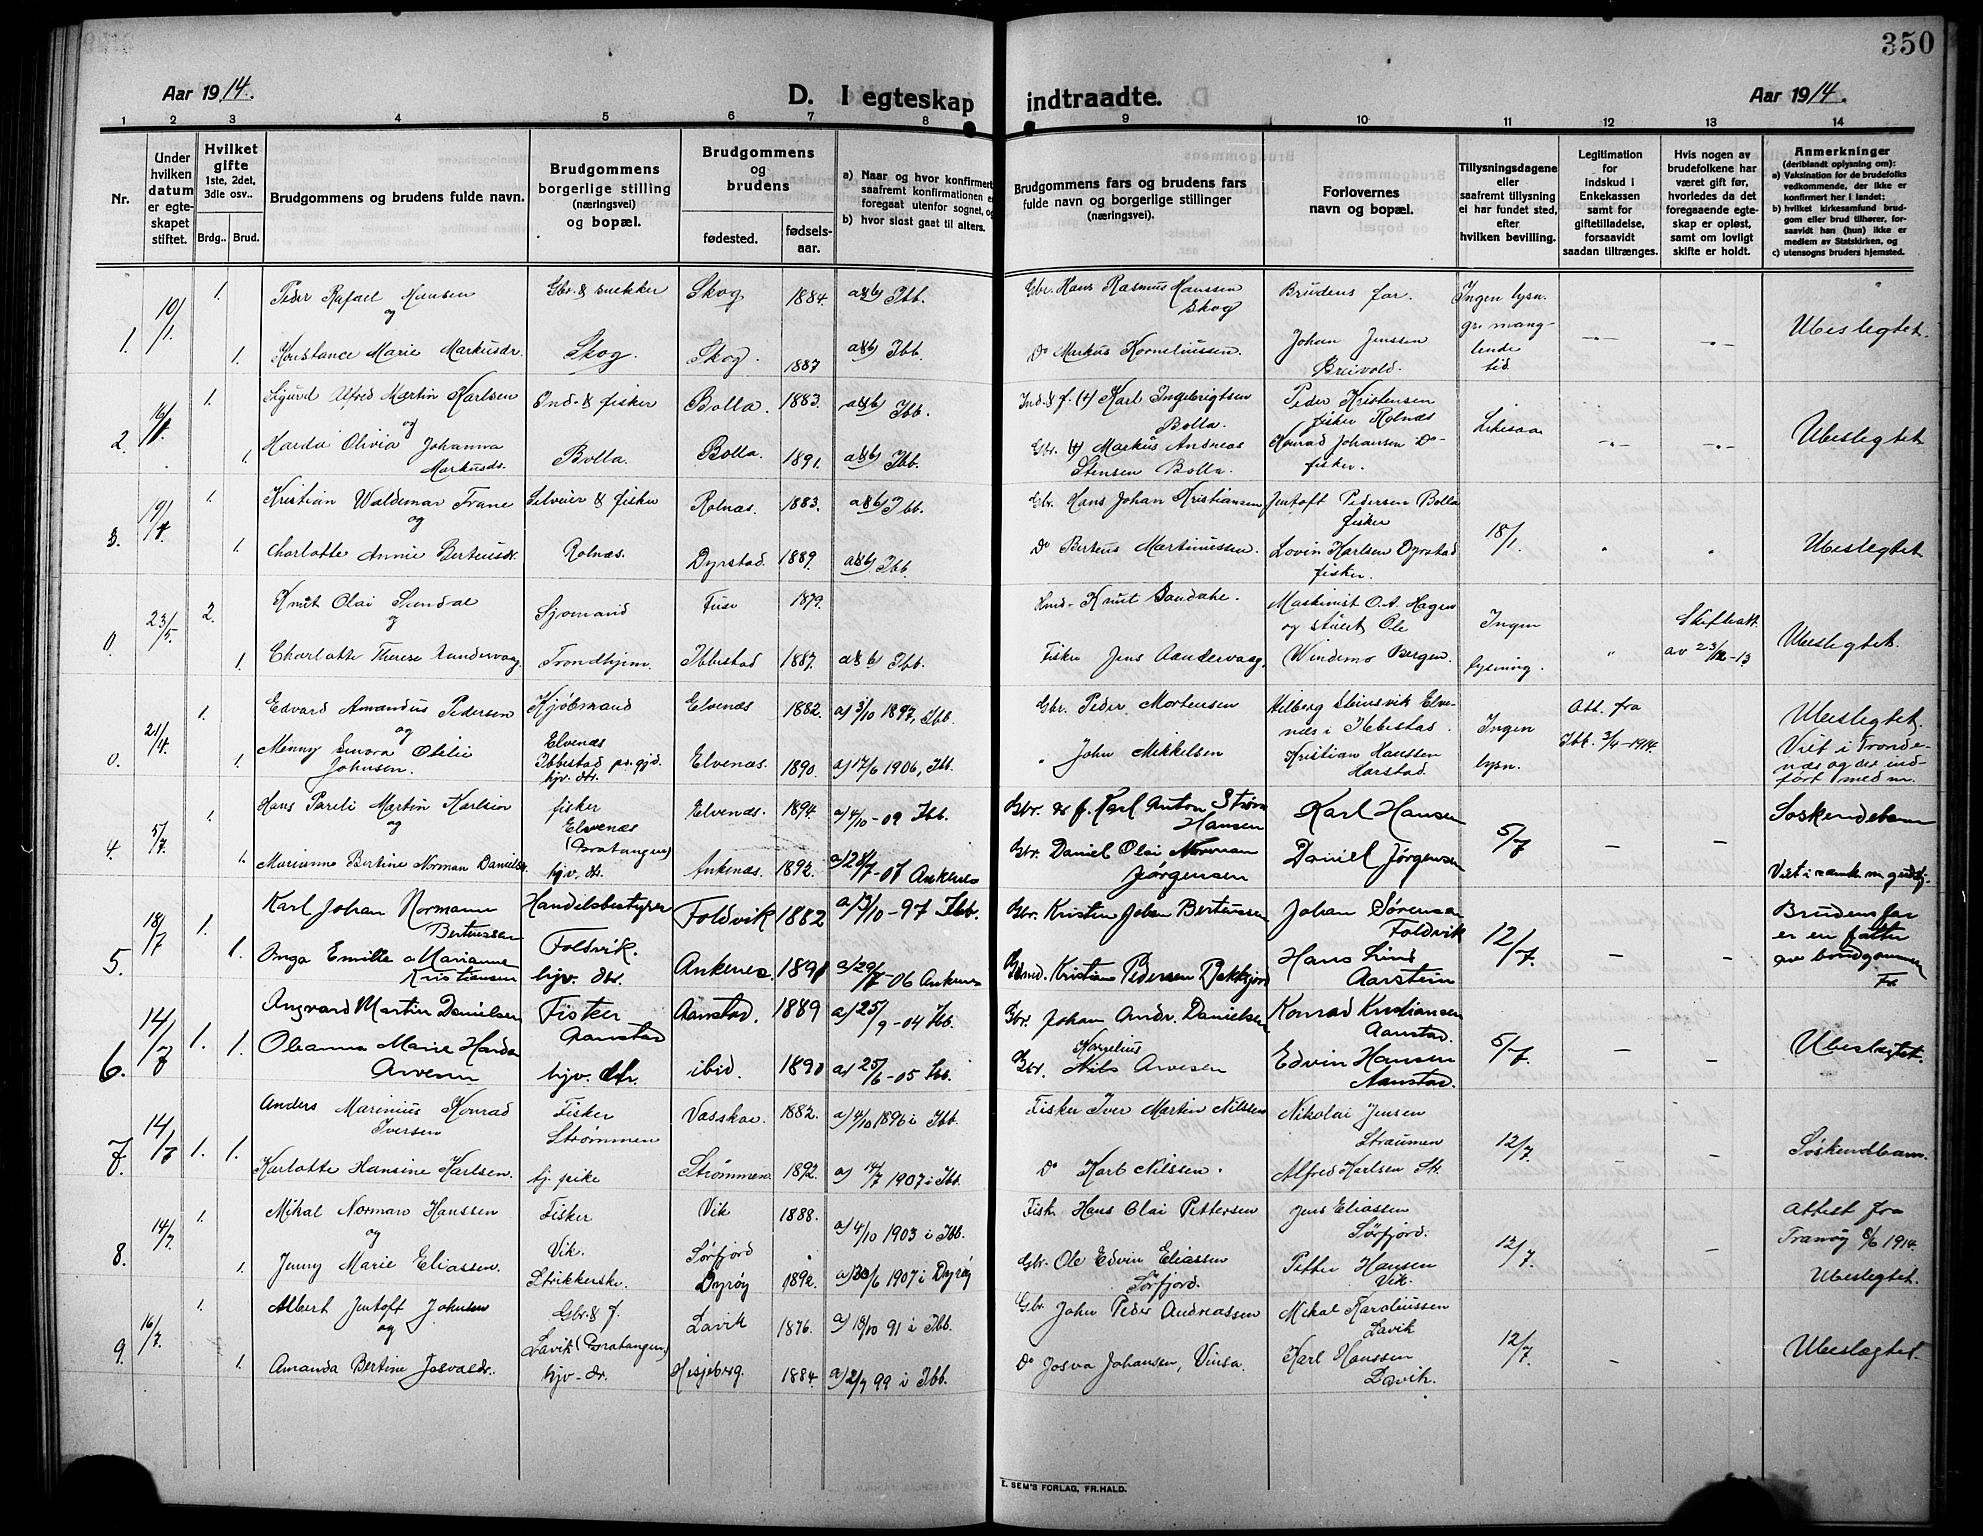 350
Aar 1914.
D. I egteskap indtraadte.
Aar 1914.
1 2 3 4 5 6 7 8 9 10 11 12 13 14
Nr.
Under hvilken datum er egteskapet stiftet.
Hvilket gifte 1ste, 2det, 3die osv..
Brdg.. Brud.
Brudgommens og brudens fulde navn.
Brudgommens borgerlige stilling (næringsvei) og bopæl.
Brudgommens og brudens
fødested. fødselsaar.
a) Naar og hvor konfirmert
saafremt konfirmationen e
foregaat utenfor sognet, og
b) hvor sidst gaat til alters.
Brudgommens fars og brudens fars
fulde navn og borgerlige stillinger
(næringsvei).
Forlovernes
navn og bopæl.
Tillysningsdagene
eller
saafremt tillysning
ei har fundet sted,
efter
hvilken bevilling.
Legitimation
for
indskud i
Enkekassen
samt for
giftetilladelse,
forsaavidt
saadan tiltrænges.
Hvis nogen av
brudefolkene har
været gift før,
hvorledes da det
foregaaende egte-
skap er opløst,
samt om lovligt
skifte er holdt.
Anmerkninger
(deriblandt oplysning om):
a) Vaksination for de brudefolks
vedkommende, der ikke er
konfirmert her i landet;
b) hvilket kirkesamfund brud-
gom eller brud tilhører, for-
saavidt han (hun) ikke er
medlem av Statskirken, og
c) utensogns bruders hjemsted.
1. 10/1 1. Peder Rafael Hansen og Gbr. & snekker Skog 1884. a&b) Ibb. Gbr. Hans Rasmus Hanssen Skog Brudens far. Ingen lysn. gr. mang-
1. Konstance Marie Markusdr. Skog. Skog. 1887 a&b) Ibb. Do Markus Korneliussen. Johan Jenssen Breivold. lende tid Ubeslegtet.
2. 1. Sigurd Alfred Martin Karlsen og Ind. & fisker Bolla. 1883. a&b) Ibb. Ind. & f. (+) Karl Ingebrigtsen Bolla. Peder Kristensen fisker Rolnæs Likesaa
1. Harda Olivia Johanna Markusds. Bolla. Bolla. 1891. a&b) Ibb. Gbr. (+) Markus Andreas Stensen Bolla. Konrad Johansen Do- fisker. Ubeslegtet
3. 1. Kristian Waldemar Trane og & fisker Rolnæs. 1883. a&b) Ibb. Gbr. Hans Johan Kristiansen Jentoft Pedersen Bolla fisker 18/1.
1. Charlotte Annie Berteusdr. Rolnæs. Dyrstad. 1889. a&b) Ibb. Do Berteus Martinussen. Lovin Karlsen Dyrstad fisker. Ubeslegtet
0. 23/5. 2. Knut Olai Sundal og Sjømand Fuse 1879. Knut Maskinist O. A. Hagen og Ole Ingen
1. Charlotte Therese Aandervaag Trondhjem. Ibbestad 1887. a& b) Ibb. Fisker Jens Aandervaag. Windemo Bergen. lysning. av 23/12-13 Ubeslegtet.
0. 21/4. 1. Edvard Amandus Pedersen og Kjøbmand Elvenæs 1882. a) 3/10 1897, Ibb. Gbr. Peder Mortensen Hilberg Elve- næs i Ibbestad. Ingen Att. fra Ubeslegtet.
1. Menny Otilie Johnsen. Elvenæs Ibbestad hjv. dtr. Elvenæs. 1890. a) 17/6 1906, Ibb. " John Mikkelsen Kristian Hanssen Harstad. lysn. Ibb. 3/4-1914 Viet i Tronde- næs og der ind- ført med nr.
4. 5/7. 1. Hans Pareli Martin Karlsen og fisker Elvenæs (Gratangen) Elvenæs. 1894. a) 4/10-09 Ibb. Gbr. & f. Karl Anton Strøm Hansen Karl Hansen 5/7 Søskendebarn
1. Marianne Bertine Norman Danielsdr. hjv. dtr. Ankenæs. 1892. a) 28/7-07 Ankenes Gbr. Daniel Olai Norman Jørgensen Daniel Jørgensen
5. 18/7 1. Karl Johan Normann Berteussen Handelsbestyrer Foldvik 1882 a) 3/10-97 Ibb. Gbr. Kristen Johan Berteussen Johan Sørensen Foldvik 12/7. Brudens far er en fætter
1. Inga Emilie Marianne Kristiansen Foldvik. hjv. dtr. Ankenes 1890 a) 29/7-06 Ankenes Kristian Pedersen Hans Lind Aarstein av brudgommens
6. 14/7 1. 1. Angvard Martin Danielsen Fisker Aanstad Aanstad. 1889 a) 25/9-04 Ibb. Gbr. Johan Andr. Danielsen Konrad Kristiansen Aanstad. 5/7.
Oleanna Marie Harda Arvesen hjv. dtr. ibid. 1890 a) 25/6-05 Ibb. Gbr. Kornelius Nils Arvesen Edvin Hansen Aanstad. Ubeslægtet.
7. 14/7 1. 1. Anders Marinius Konrad Iversen Fisker Strømmen Vasskar. 1882. a) 4/10 1896 i Ibb. Fisker Iver Martin Nilssen Nikolai Jensen Straumen 12/7.
Karlotte Hansine Karlsen. hj. pike Strømmen 1892. a) 14/7 1907 i Ibb. Do Karl Nilssen. Alfred Karlsen Str. Søskendbarn.
8. 14/7 1. Mikal Norman Hanssen og Fisker Vik. Vik 1888. a) 4/10 1903 i Ibb. Fisk. Hans Olai Pettersen Jens Eliassen Sørfjord. 12/7. Attest fra Tranøy 8/6 1914.
1. Jenny Marie Eliassen. Strikkerske. Sørfjord Dyrøy 1892. a) 30/6 1907 i Dyrøy Gbr. Ole Edvin Eliassen Sørfjord. Petter Hansen Vik. Ubeslegtet.
9. 16/7 1. Albert Jentoft Johnsen og Gbr. & f. Lavik (Gratangen) Lavik 1876. a) 18/10 91 i Ibb. Gbr. John Peder Andreassen Mikal Karoliussen Lavik 12/7.
1. Amanda Bertine Josvaldr. hjv. dr. Hesjeberg. 1884. a) 2/7 99 i Ibb. Do Josva Johansen, Vinsa. Karl Hanssen Lavik. Ubeslægtet.
E. SEM'S FORLAG, FR.HALD.